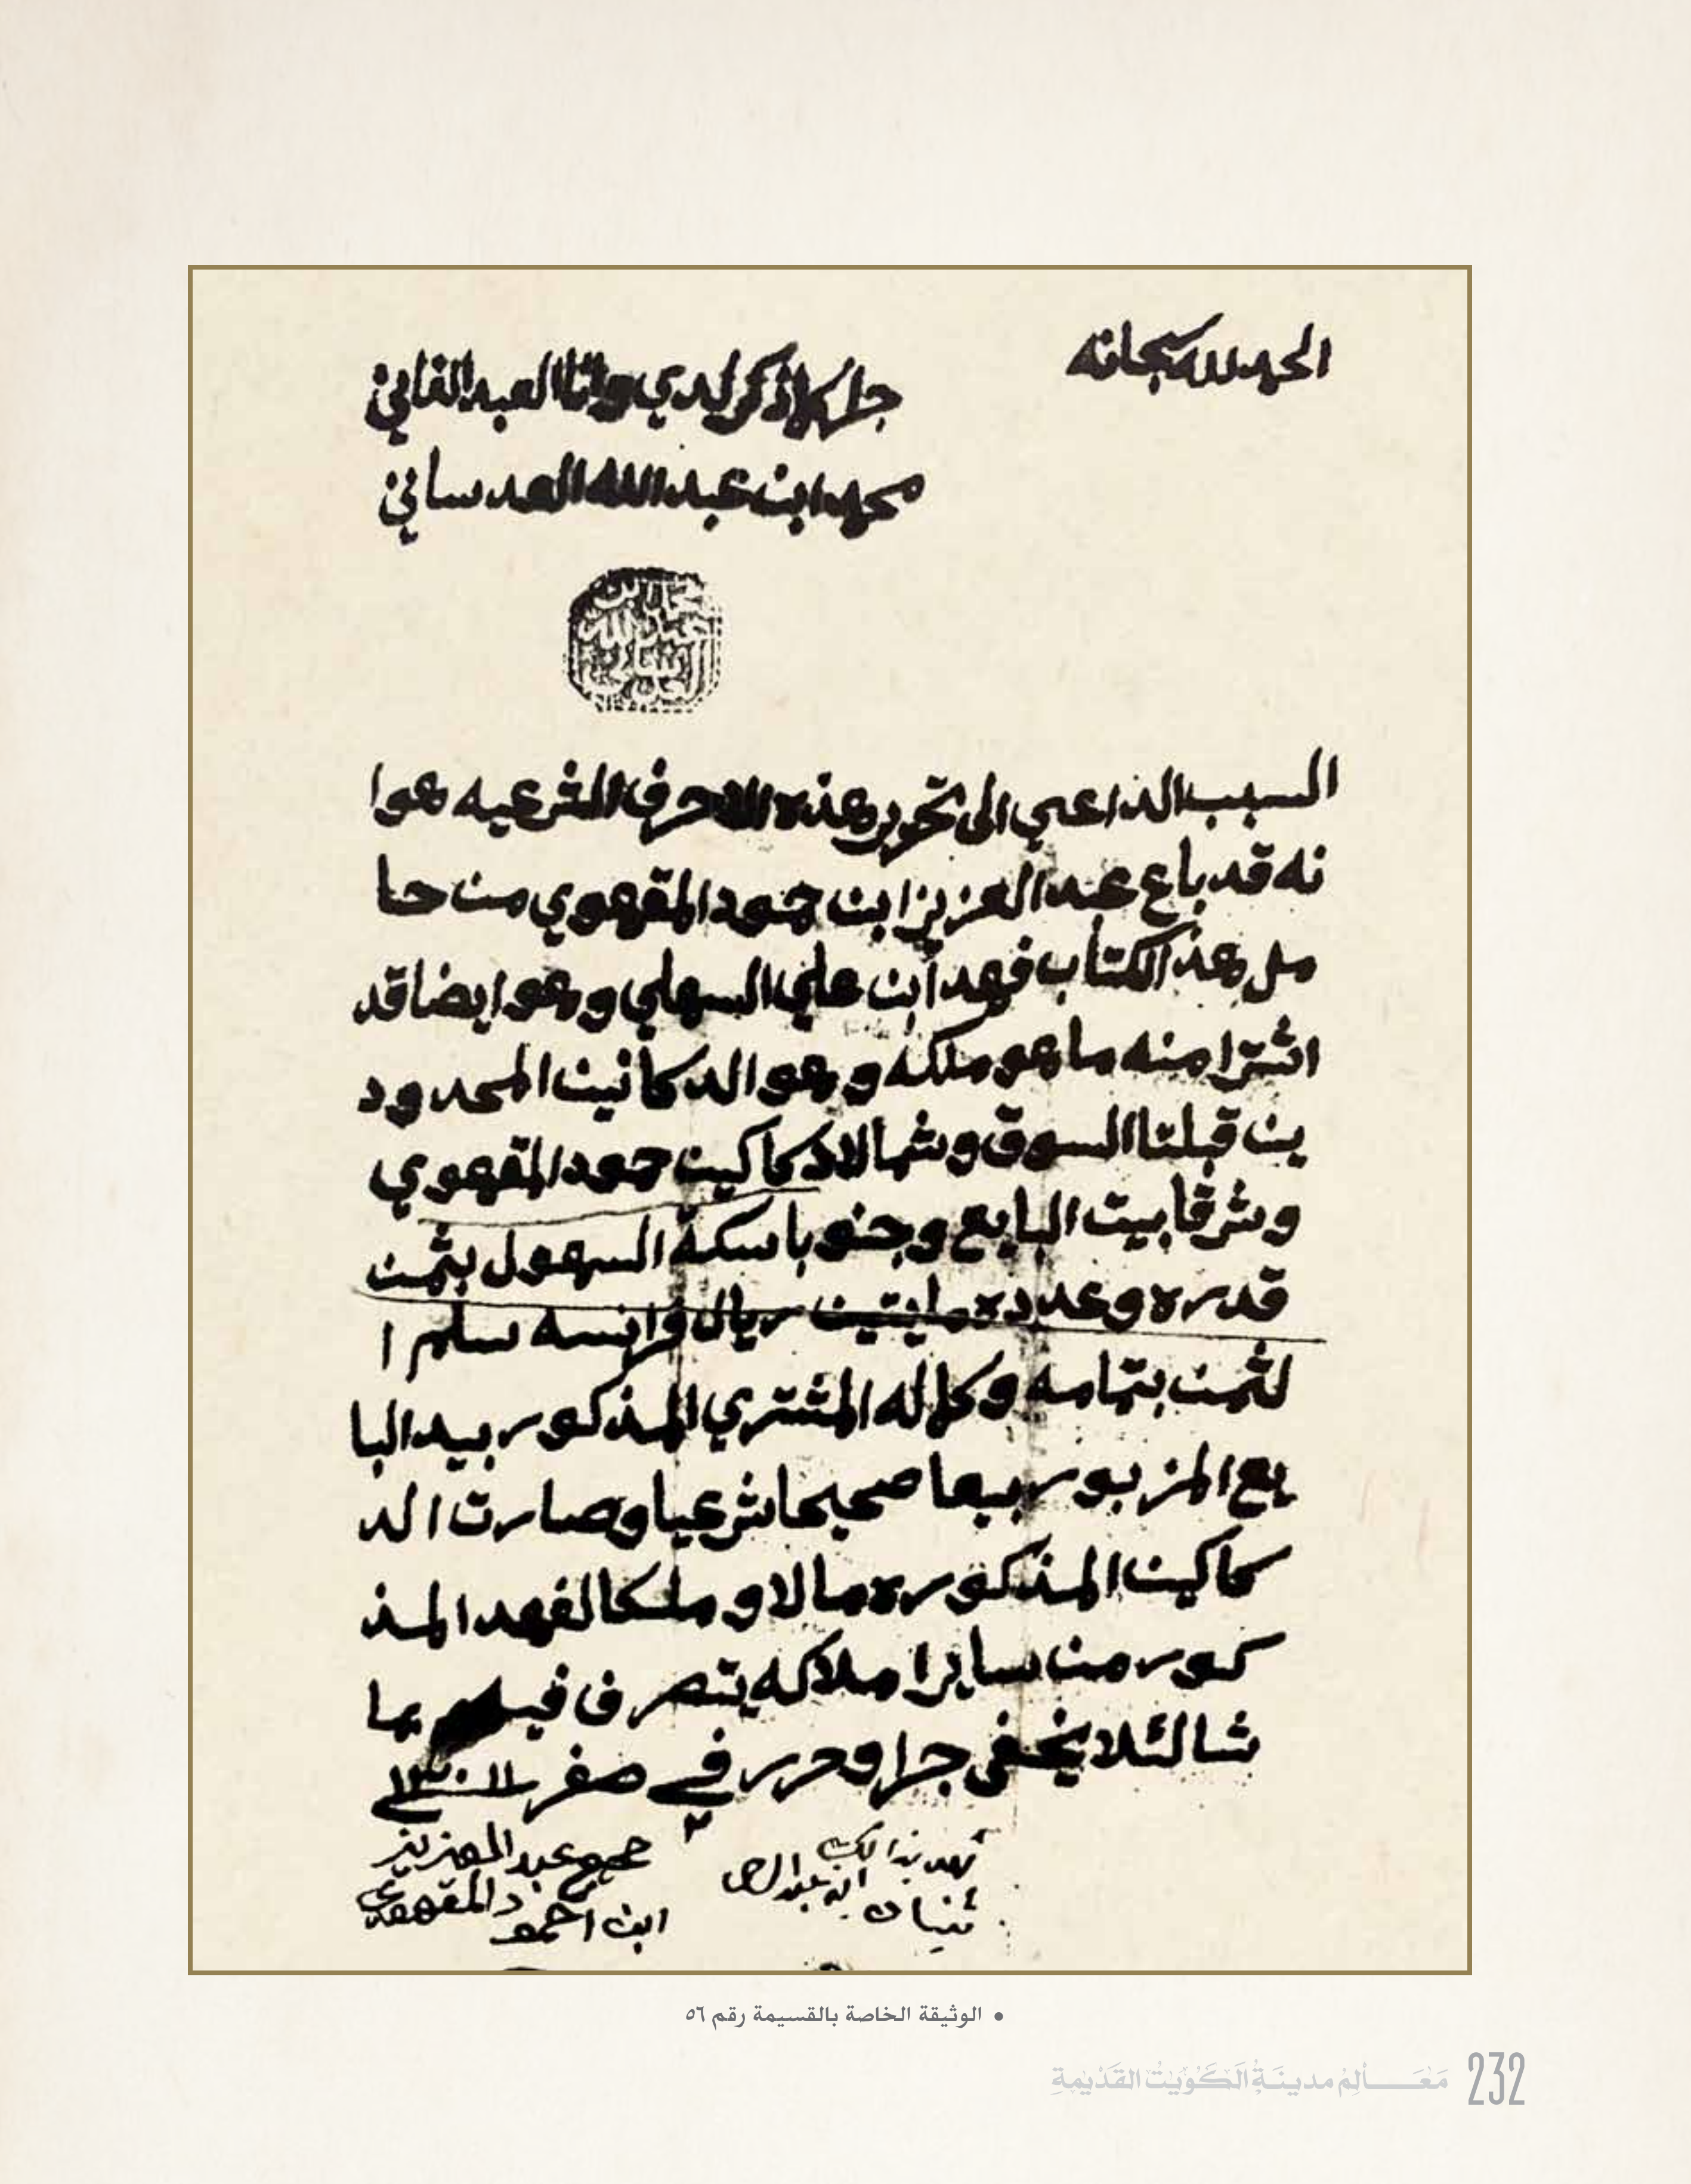 الحمد لله سبحانه
جرا كلما ذكر لدي وانا العبد الفاني
محمد ابن عبد الله العدساني
محمد بن
عبد الله
العدساني
السبب الداعي الى تحرير هذه الاحرف الشرعيه هوا
نه قد باع عبد العزيز ابن حمود المقهوي من حا
مل هذ الكتاب فهد ابن علي السهلي وهو ايضا قد
اشترا منه ما هو ملكه وهو الدكانين المحدود
ين قبلتا السوق وشمالا دكاكين حمود المقهوي
وشرقا بيت البايع وجنوبا سكة السهول بثمن
قدره وعدده مايتين ريال فرانسه سلم ا
لثمن بتمامه وكماله المشتري المذكور بيد البا
يع المزبور بيعا صحيحا شرعيا وصارت الد
كاكين المذكوره مالا وملكا لفهد المذ
كور من ساير املاكه يتصرف فيهم بما
شا لئلا يخفى جرا وحرر في صفر سنة ١٣٠١١
شهد بذالك
ثنيان ابن عبدالرحمن
صح عبد العزيز
ابن احمود المقهوي
• الوثيقة الخاصة بالقسيمة رقم ٥٦
مَعَالِمُ مدينَةِ الكُوَيْتِ القَدْيمةِ 232